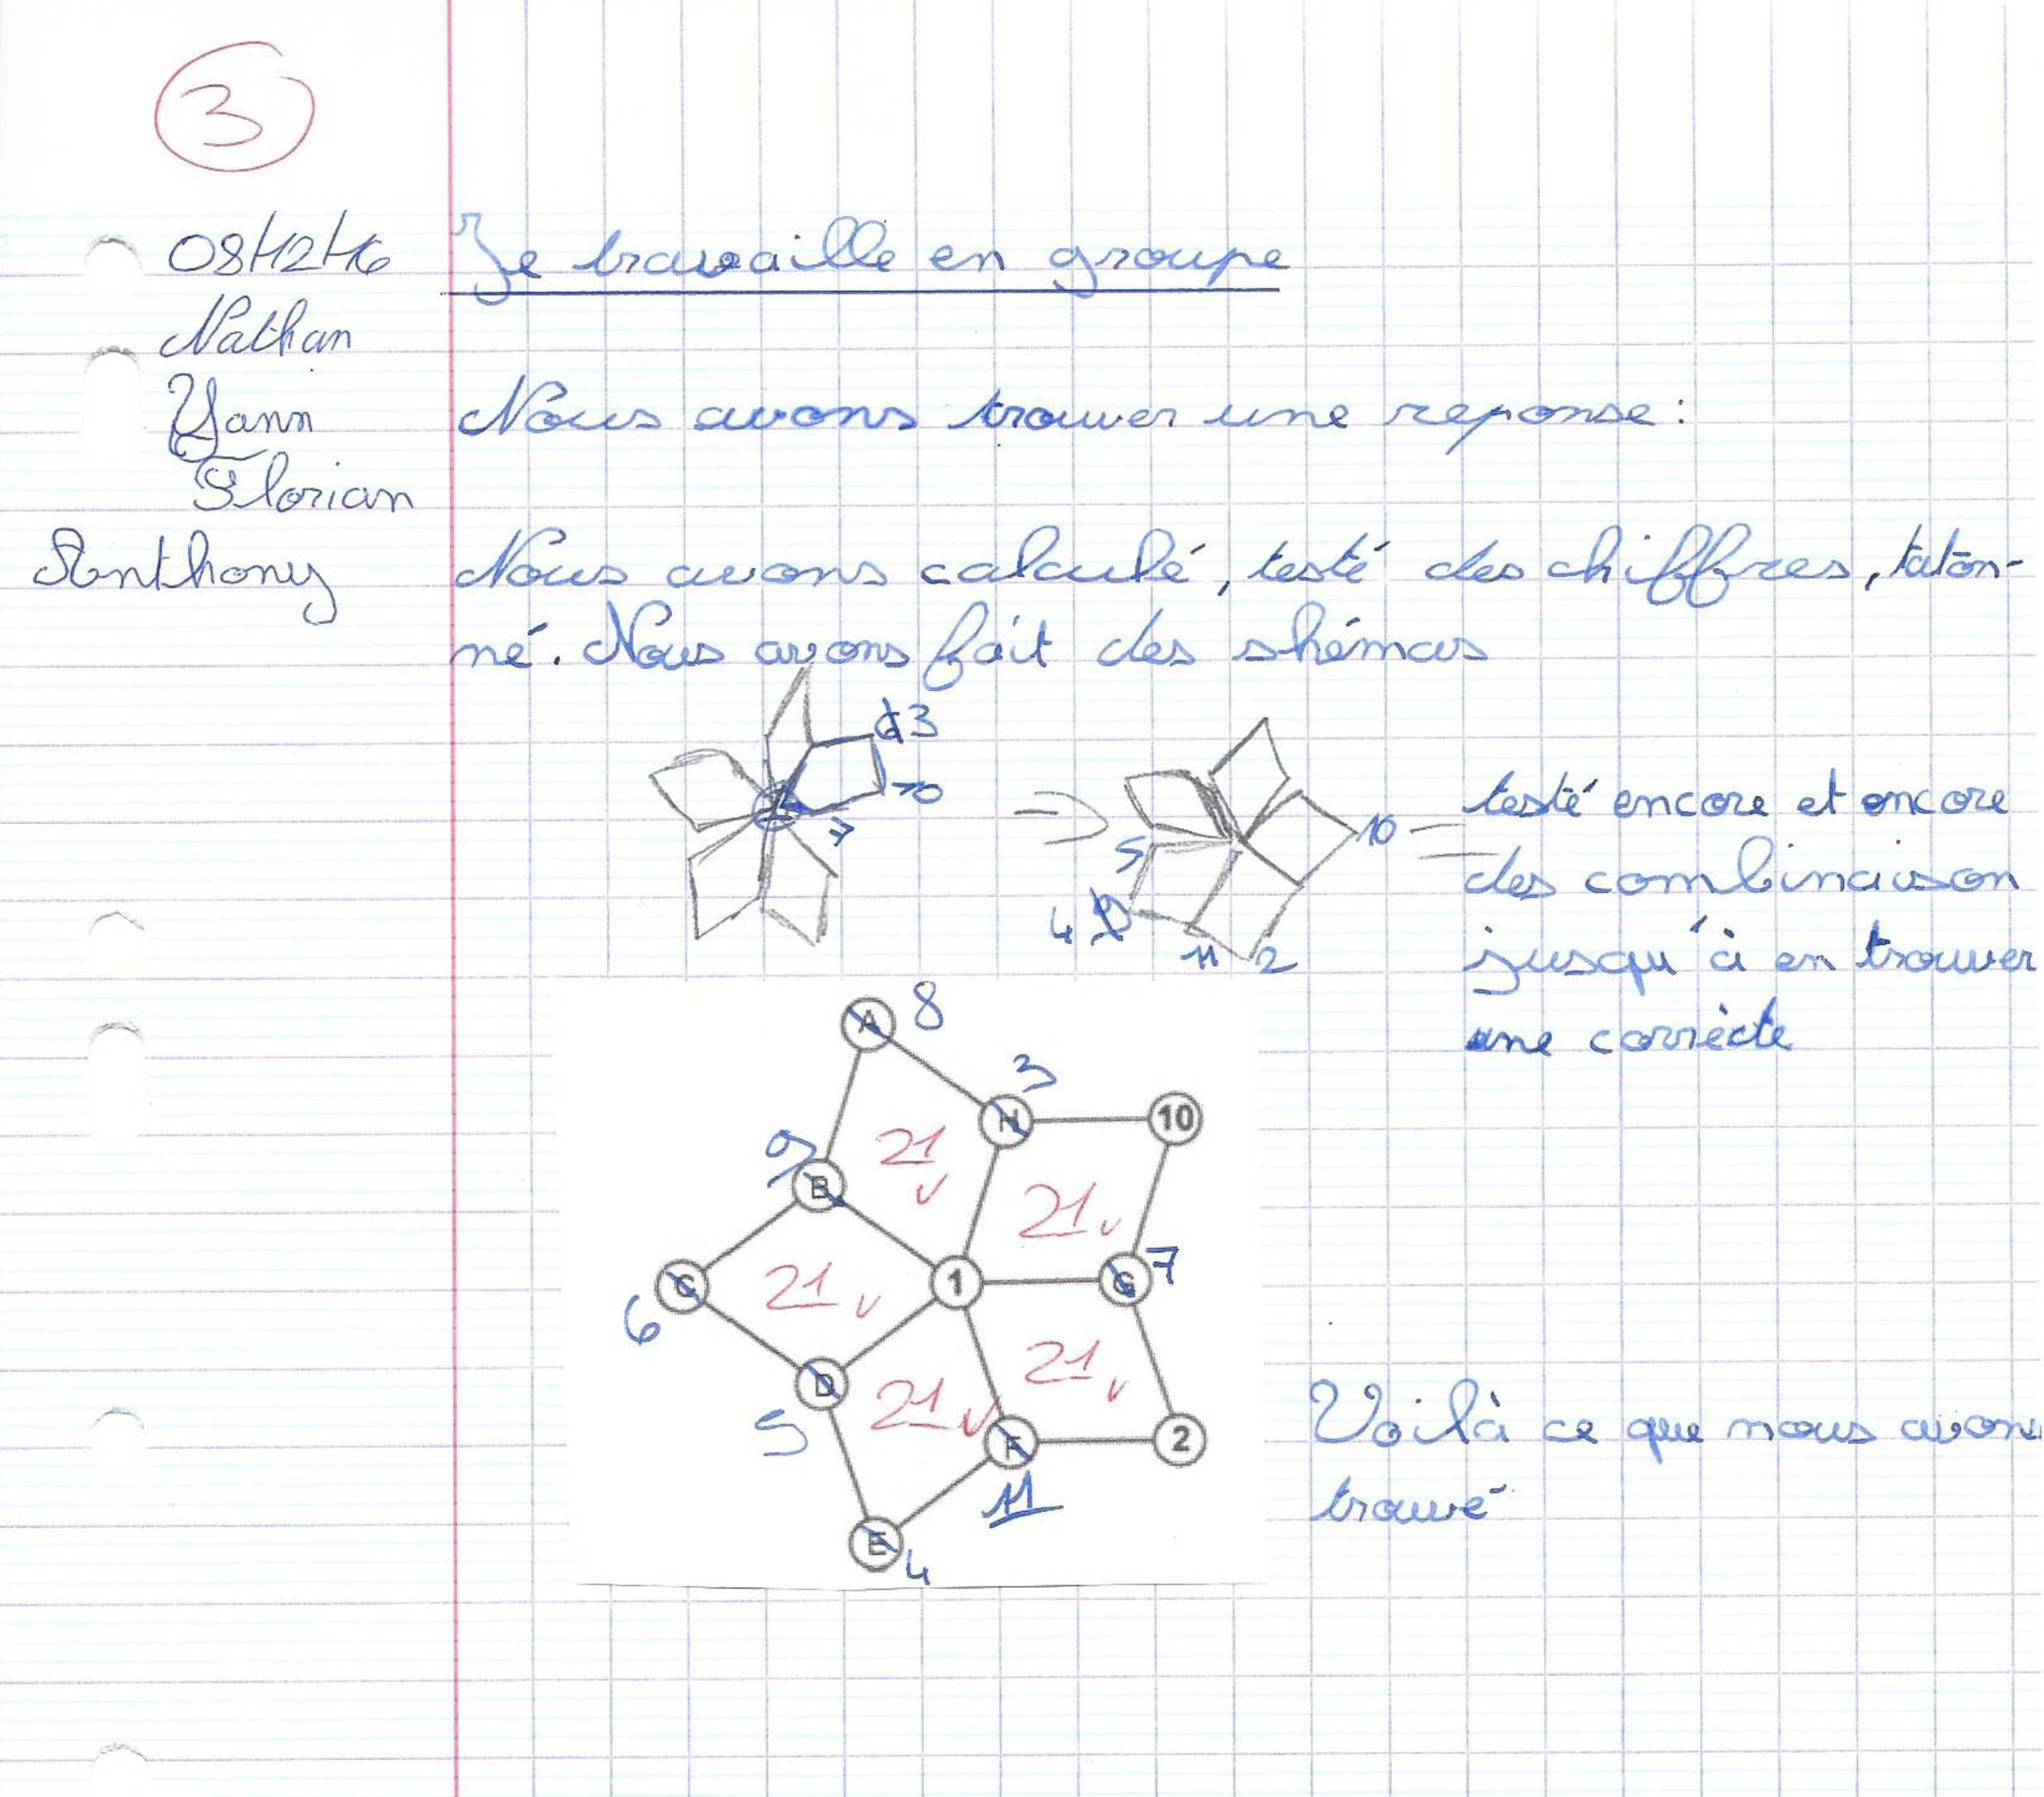 3
08/12/16
Je travaille en groupe
Nathan
Yann
Nous avons trouver une reponse :
Florian
Anthony
Nous avons calculé, testé des chiffres, tâton-
né. Nous avons fait des shémas
3
10
7
10
5
4
11
2
testé encore et encore
des combinaison
jusqu'à en trouver
une corrècte
A 8
3
H
10
9
B
21
21
C
6
21
1
G 7
D
5
21
21
F
11
2
E 4
Voilà ce que nous avons
trouvé